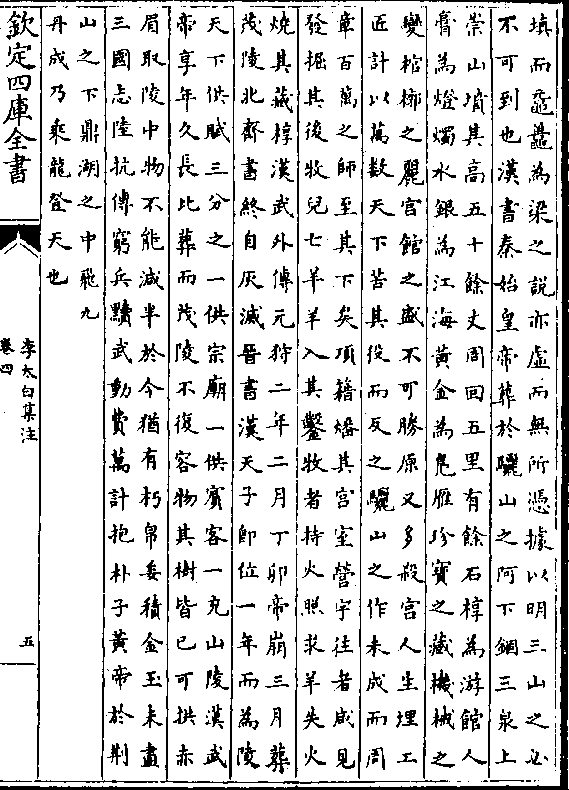 填而黿鼉為梁之說亦虛而無所憑據以明三山之必
不可到也漢書秦始皇帝葬於驪山之阿下錮三泉上
崇山墳其高五十餘丈周回五里有餘石椁為游館人
膏為燈燭水銀為江海黃金為鳧雁珍寶之藏機械之
變棺槨之麗宮館之盛不可勝原又多殺宮人生埋工
匠計以萬數天下苦其役而反之驪山之作未成而周
章百萬之師至其下矣項籍燔其宮室營宇往者咸見
發掘其後牧兒亡羊羊入其鑿牧者持火照求羊失火
燒其藏椁漢武外傳元狩二年二月丁卯帝崩三月葬
茂陵北齊書終自灰滅晉書漢天子即位一年而為陵
天下供賦三分之一供宗廟一供賓客一充山陵漢武
帝享年久長比葬而茂陵不復容物其樹皆已可拱赤
眉取陵中物不能減半於今猶有朽帛委積金玉未盡
三國志陸抗傳窮兵黷武動費萬計抱朴子黃帝於荆
山之下鼎湖之中飛九
丹成乃乘龍登天也
欽定四庫全書
李太白集注
卷四
五